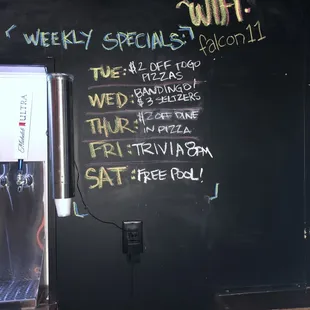 WIFI:
falcon11
WEEKLY SPECIALS:
TUE: $2 OFF TOGO
PIZZAS
WED: BANDINGO!
$3 SELTZERS
THUR: $2 OFF DINE
IN PIZZA
FRI: TRIVIA 8PM
SAT: FREE POOL!
Michelob ULTRA